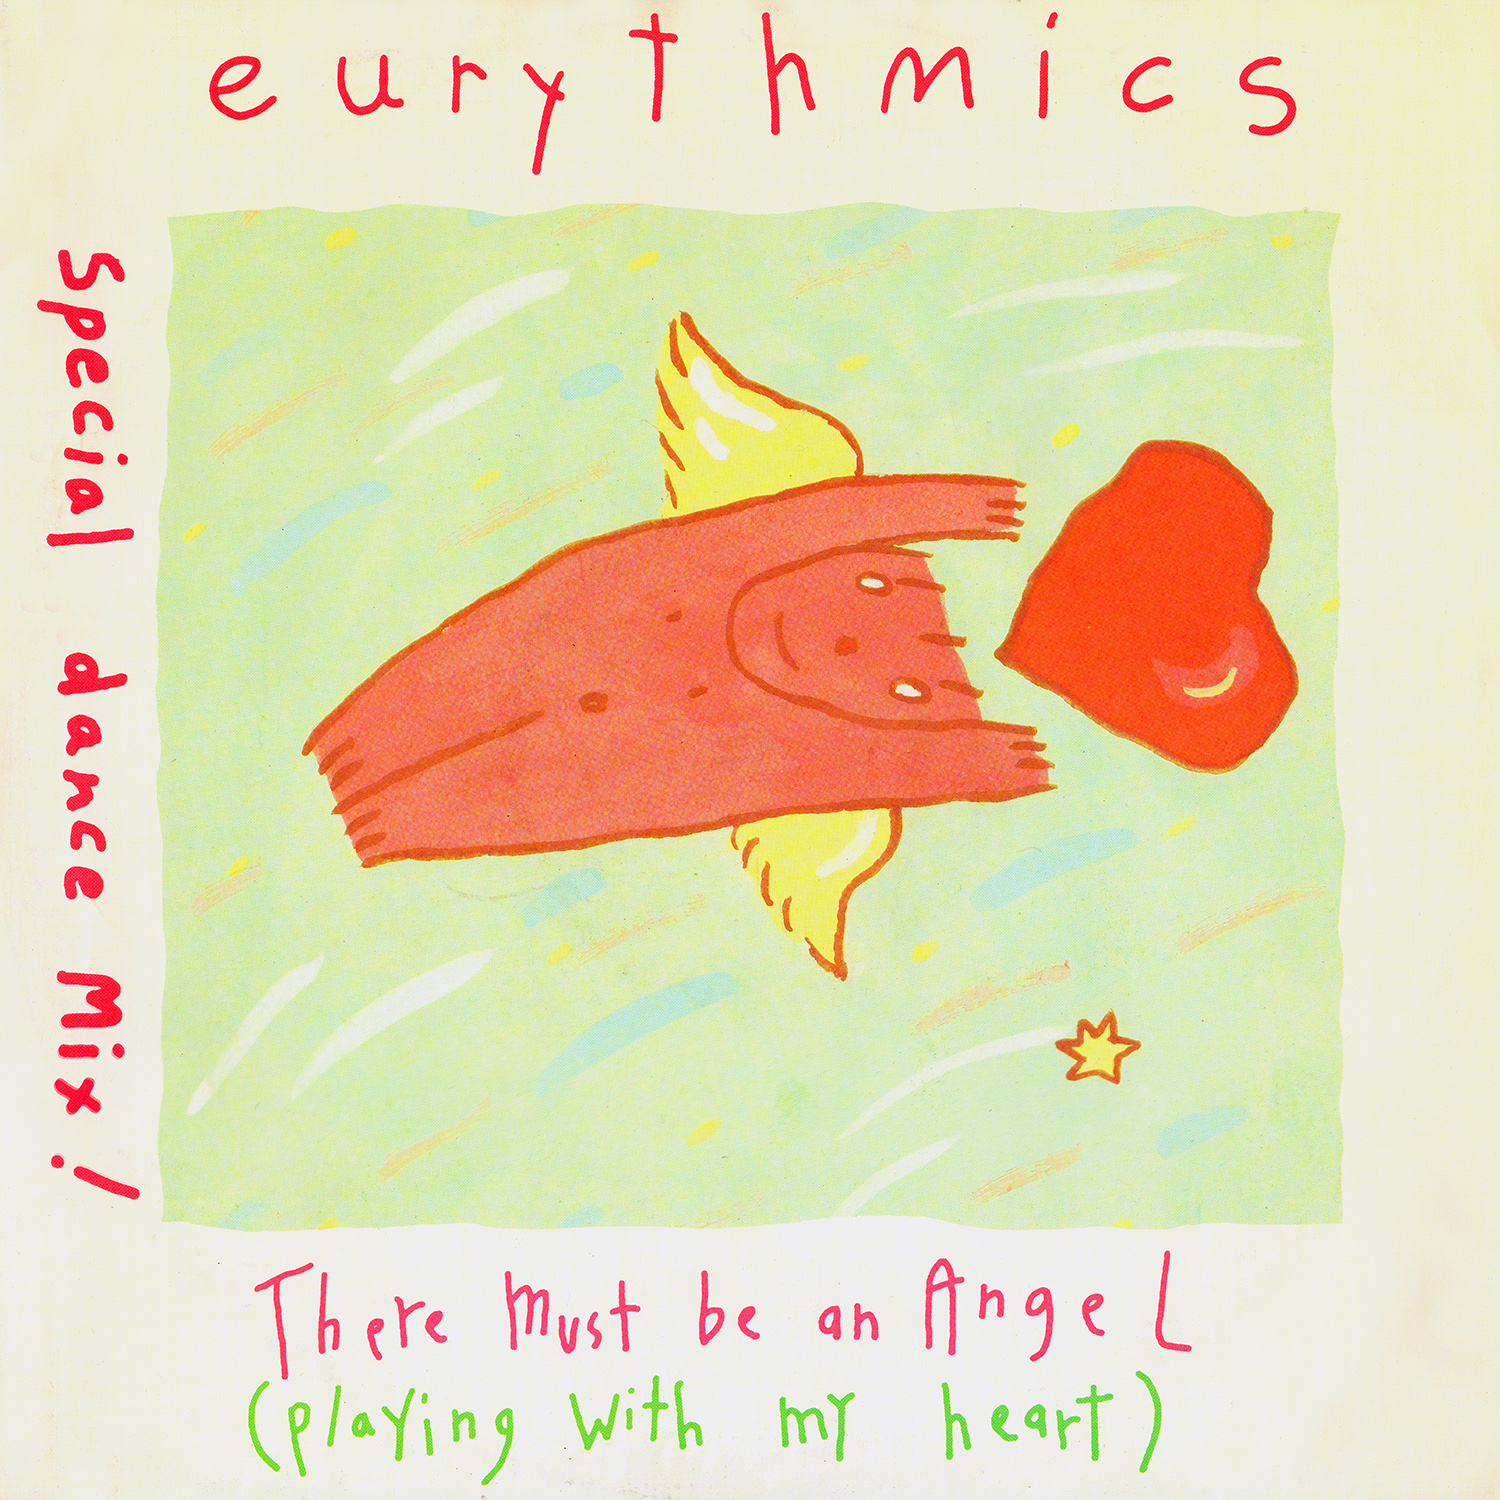 eurythmics
Special dance Mix!
There Must be an AngeL
(playing with my heart)